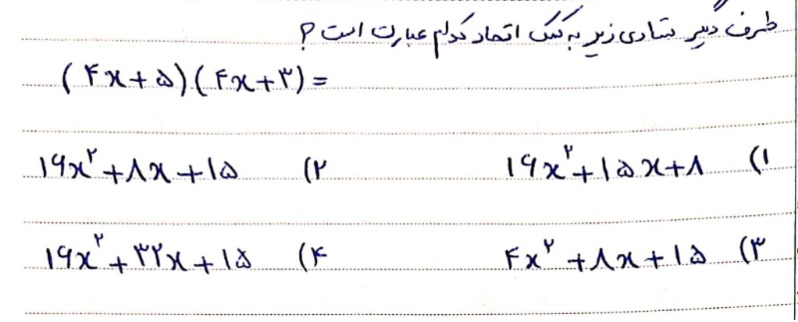 طرف دیگر تساوی زیر به کمک اتحاد کدام عبارت است؟
(۴x+۵)(۴x+۳)=
۱) ۱۶x^۲+۱۵x+۸ ۲) ۱۶x^۲+۸x+۱۵
۳) ۴x^۲+۸x+۱۵ ۴) ۱۶x^۲+۳۲x+۱۵